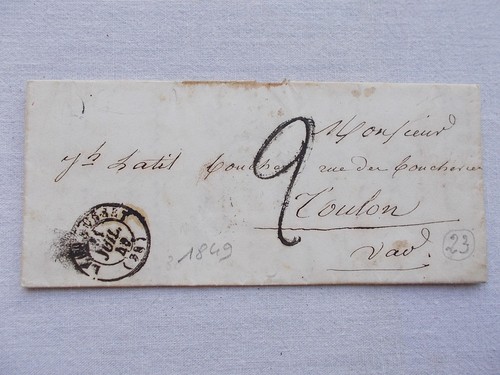 Monsieur
Jh Latil Boucher rue des Boucheries
2
Toulon
Var.
JUIL.
49
(83)
1849
23